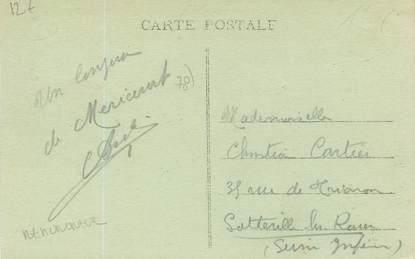 12€
CARTE POSTALE
Un bonjour
de Méricourt
78)
Mademoiselle
Christian Cartier
35 rue de Trianon
Sotteville les Rouen
(Seine Infér)